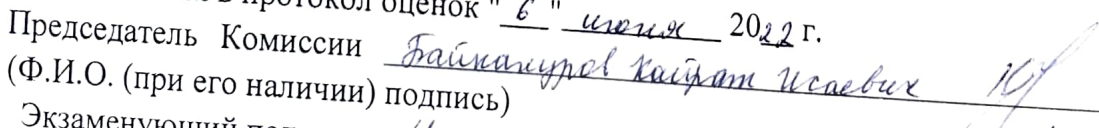 протокол оценок "6" июня 2022 г.
Председатель Комиссии Байжануров Кайрат Исаевич
(Ф.И.О. (при его наличии) подпись)
Экзаменующий